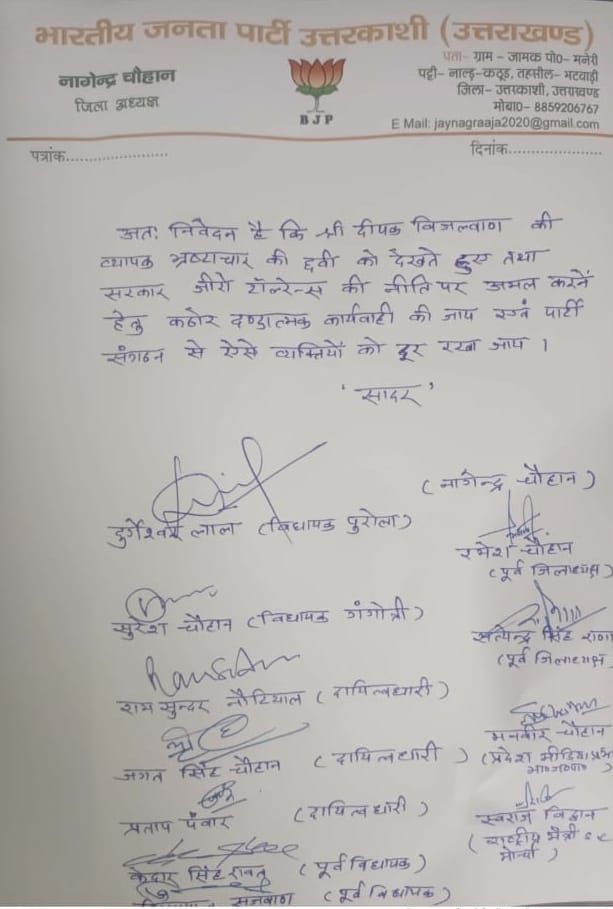 भारतीय जनता पार्टी उत्तरकाशी (उत्तराखण्ड)
नागेन्द्र चौहान
जिला अध्यक्ष
BJP
पता- ग्राम - जामक पो०- मनेरी
पट्टी- नाल्ड-कठूड़, तहसील- भटवाड़ी
जिला- उत्तरकाशी, उत्तराखण्ड
मोबा0- 8859206767
E Mail: jaynagraaja2020@gmail.com
पत्रांक.......................
दिनांक.....................
अतः निवेदन है कि श्री दीपक बिजल्वाण की
व्यापक भ्रष्टाचार की छवी को देखते हुए तथा
सरकार जीरो टॉलरेन्स की नीति पर अमल करनें
हेतु कठोर दण्डात्मक कार्यवाही की जाय एवं पार्टी
संगठन से ऐसे व्यक्तियों को दूर रखा जाय ।
' सादर '
(नागेन्द्र चौहान)
दुर्गेश्वर लाल (विधायक पुरोला)
रमेश चौहान
(पूर्व जिलाध्यक्ष)
सुरेश चौहान (विधायक गंगोत्री)
सत्येन्द्र सिंह राणा
(पूर्व जिलाध्यक्ष)
राम सुन्दर नौटियाल (दायित्वधारी)
मनवीर चौहान
(प्रदेश मीडिया
जगत सिंह चौहान (दायित्वधारी)
प्रताप पंवार (दायित्वधारी)
स्वराज विद्वान
(राष्ट्रीय मंत्री
मोर्चा)
केदार सिंह रावत (पूर्व विधायक)
सजवाण (पूर्व विधायक)